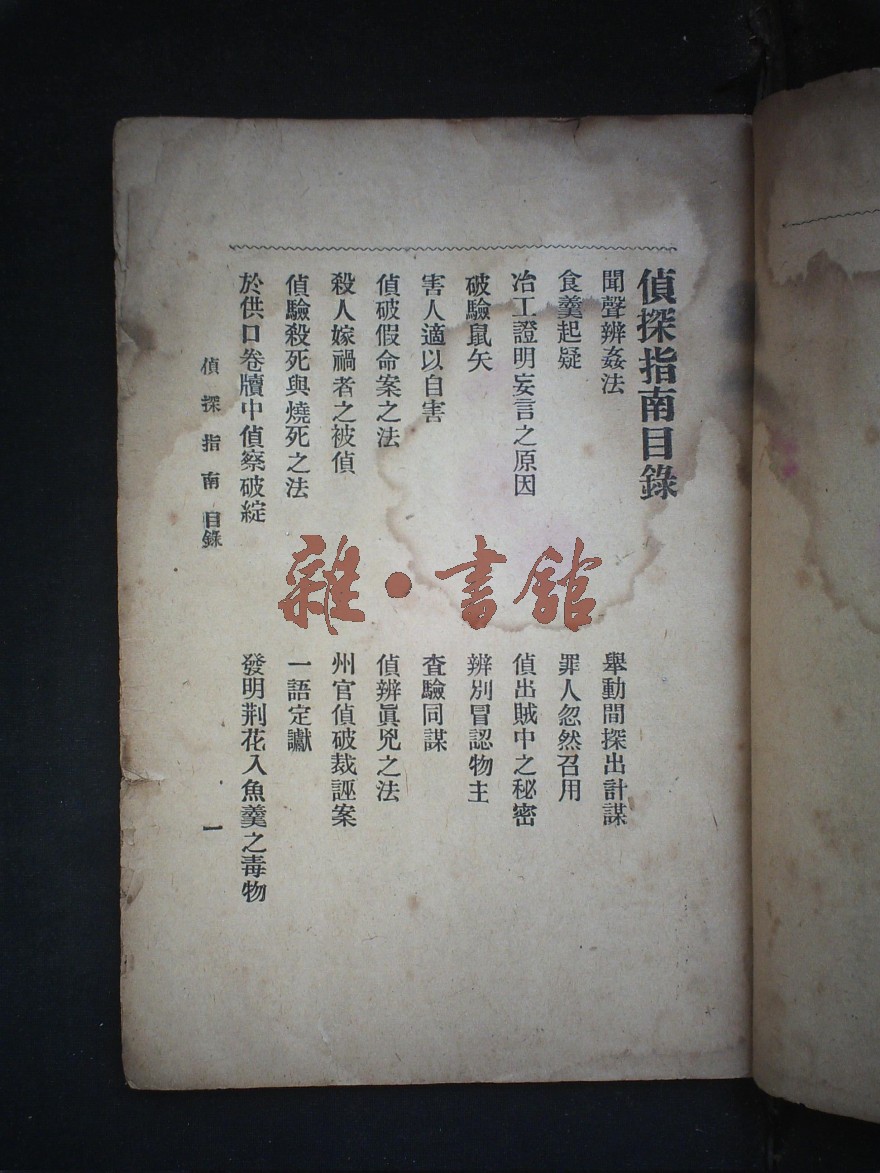 偵探指南目錄
聞聲辨姦法
舉動間探出計謀
食羹起疑
罪人忽然召用
冶工證明妄言之原因
偵出賊中之秘密
破驗鼠矢
辨別冒認物主
害人適以自害
査驗同謀
偵破假命案之法
偵辨眞兇之法
殺人嫁禍者之被偵
州官偵破裁誣案
偵驗殺死與燒死之法
一語定讞
於供口卷牘中偵察破綻
發明荆花入魚羹之毒物
偵探指南 目錄
一
雜·書館